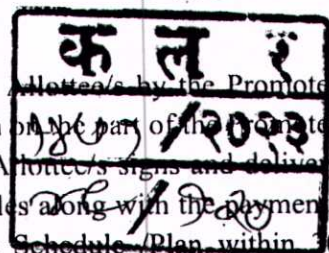 क ल र
Allottee/s by the Promote
on the part of the Promote
/२०२३
Allottee/s signs and deliver
les along with the paymen
Schedule /Plan within